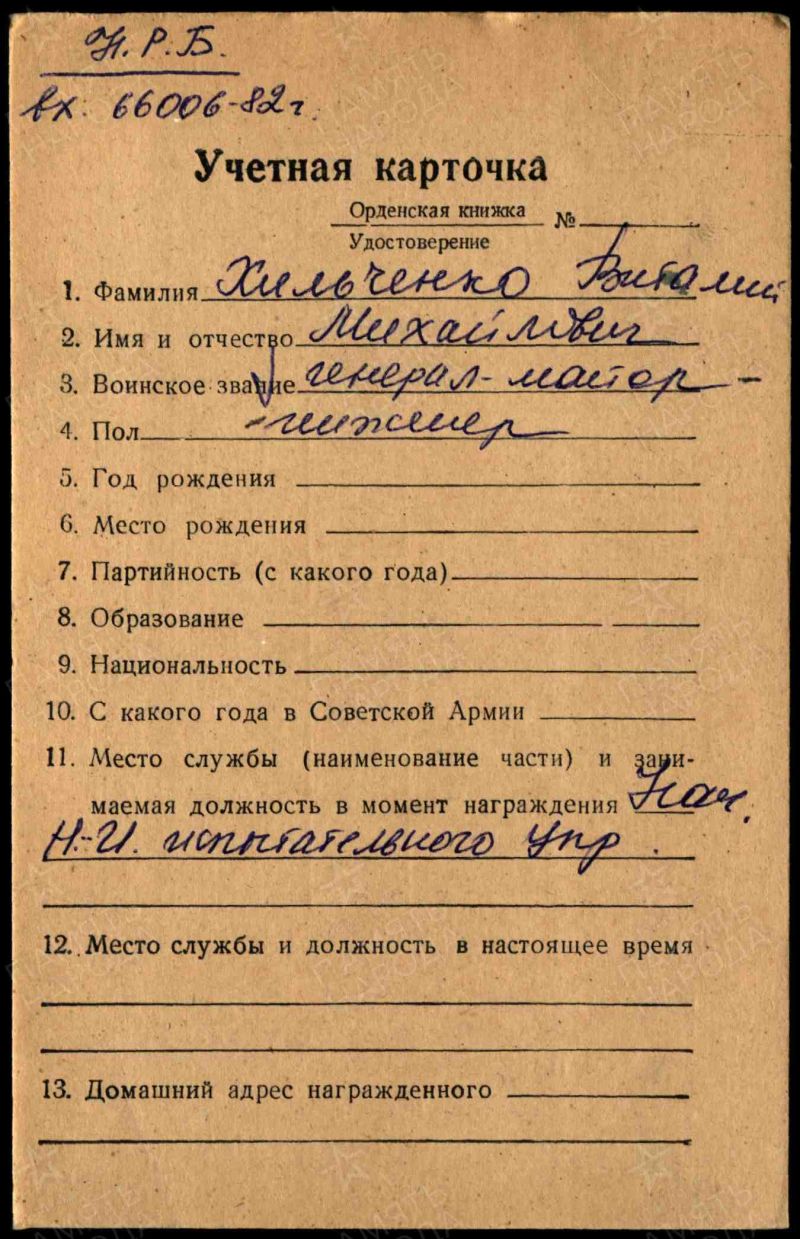 Н.Р.Б.
вх. 66006-82г.
Учетная карточка
Орденская книжка
№
Удостоверение
1. Фамилия Хильченко Виталий
2. Имя и отчество Михайлович
3. Воинское звание генерал-майор-
4. Пол -инженер
5. Год рождения
6. Место рождения
7. Партийность (с какого года)
8. Образование
9. Национальность
10. С какого года в Советской Армии
11. Место службы (наименование части) и зани-
маемая должность в момент награждения Нач.
Н-И. испытательного Упр.
12. Место службы и должность в настоящее время
13. Домашний адрес награжденного